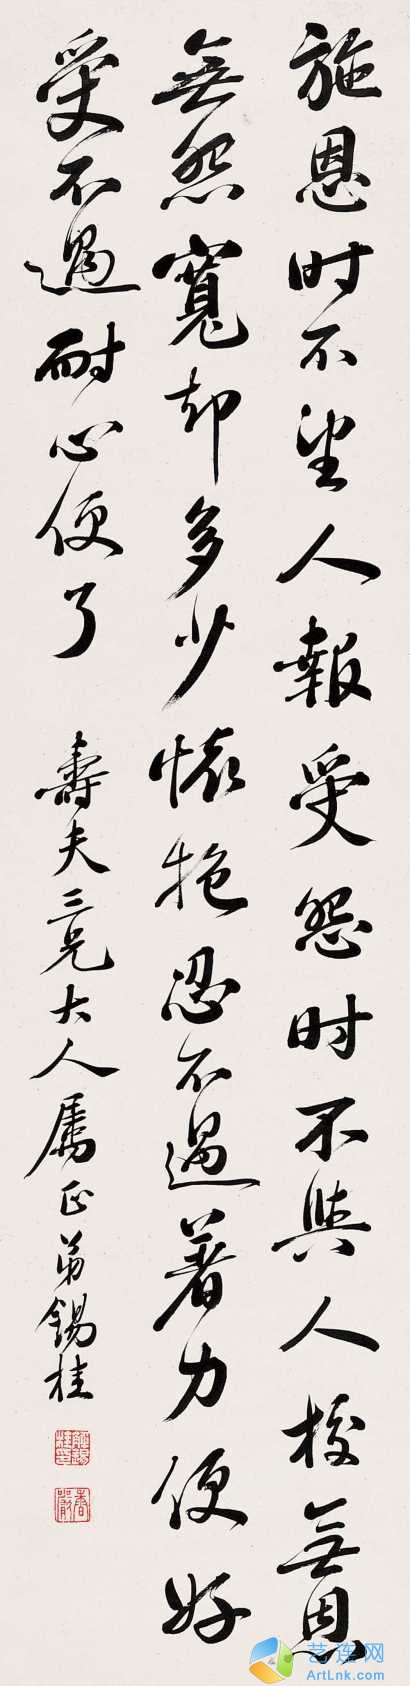 施恩时不望人報受怨时不與人校無恩
無怨寬却多少懷抱忍不過著力便好
受不過耐心便了 壽夫三兄大人屬正弟錫桂
艺连网
ArtLnk.com